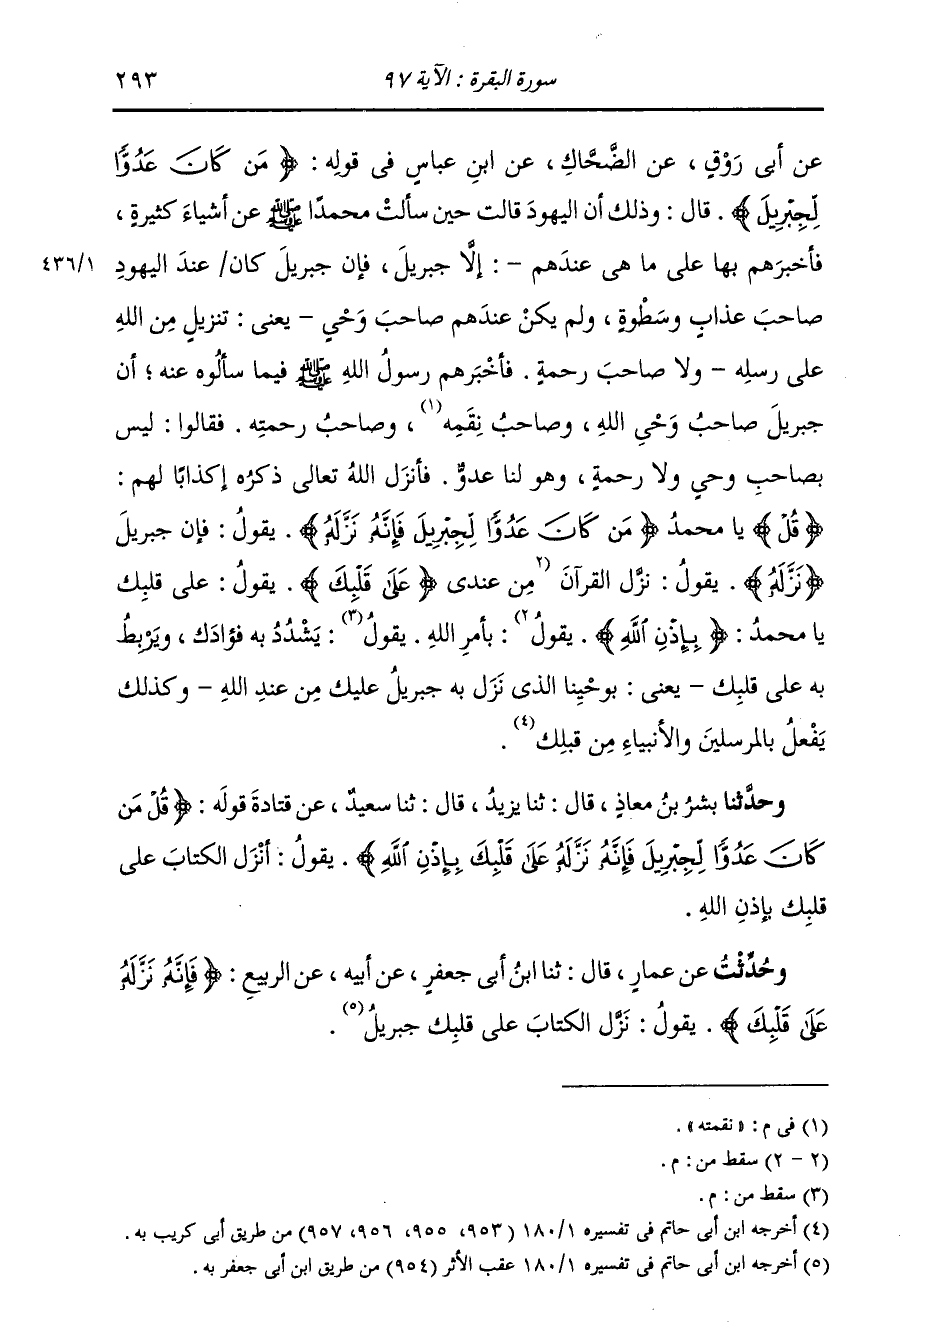 سورة البقرة : الآية ٩٧
٢٩٣
عن أبى رَوْقٍ ، عن الضَّحَّاكِ ، عن ابنِ عباسٍ فى قولِه : ﴿ مَن كَانَ عَدُوًّا
لِّجِبْرِيلَ ﴾ . قال : وذلك أن اليهودَ قالت حين سألتْ محمدًا ﷺ عن أشياءَ كثيرةٍ ،
فأخبرَهم بها على ما هى عندَهم – : إلَّا جبريلَ ، فإن جبريلَ كان/ عندَ اليهودِ
٤٣٦/١
صاحبَ عذابٍ وسَطْوةٍ ، ولم يكنْ عندَهم صاحبَ وَحْيٍ – يعنى : تنزيلٍ مِن اللهِ
على رسلِه – ولا صاحبَ رحمةٍ . فأخْبَرهم رسولُ اللهِ ﷺ فيما سألُوه عنه ؛ أن
جبريلَ صاحبُ وَحْيِ اللهِ ، وصاحبُ نِقَمِه(١) ، وصاحبُ رحمتِه . فقالوا : ليس
بصاحبِ وحيٍ ولا رحمةٍ ، وهو لنا عدوٌّ . فأنزَل اللهُ تعالى ذكرُه إكذابًا لهم :
﴿ قُلْ ﴾ يا محمدُ ﴿ مَن كَانَ عَدُوًّا لِّجِبْرِيلَ فَإِنَّهُ نَزَّلَهُ ﴾ . يقولُ : فإن جبريلَ
﴿ نَزَّلَهُ ﴾ . يقولُ : نزَّل القرآنَ (٢مِن عندى ﴿ عَلَى قَلْبِكَ ﴾ . يقولُ : على قلبِك
يا محمدُ : ﴿ بِإِذْنِ ٱللَّهِ ﴾ . يقولُ٢) : بأمرِ اللهِ . يقولُ(٣) : يَشْدُدُ به فؤادَك ، ويَرْبِطُ
به على قلبِك – يعنى : بوحْيِنا الذى نَزَل به جبريلُ عليك مِن عندِ اللهِ – وكذلك
يَفْعلُ بالمرسلينَ والأنبياءِ مِن قبلِك(٤) .
وحدَّثنا بشرُ بنُ معاذٍ ، قال : ثنا يزيدُ ، قال : ثنا سعيدٌ ، عن قتادةَ قولَه : ﴿ قُلْ مَن
كَانَ عَدُوًّا لِّجِبْرِيلَ فَإِنَّهُ نَزَّلَهُ عَلَى قَلْبِكَ بِإِذْنِ ٱللَّهِ ﴾ . يقولُ : أنْزَل الكتابَ على
قلبِك بإذنِ اللهِ .
وحُدِّثْتُ عن عمارٍ ، قال : ثنا ابنُ أبى جعفرٍ ، عن أبيه ، عن الربيعِ : ﴿ فَإِنَّهُ نَزَّلَهُ
عَلَى قَلْبِكَ ﴾ . يقولُ : نَزَّل الكتابَ على قلبِك جبريلُ(٥) .
(١) فى م : « نقمته » .
(٢ – ٢) سقط من : م .
(٣) سقط من : م .
(٤) أخرجه ابن أبى حاتم فى تفسيره ١٨٠/١ (٩٥٣، ٩٥٥، ٩٥٦، ٩٥٧) من طريق أبى كريب به .
(٥) أخرجه ابن أبى حاتم فى تفسيره ١٨٠/١ عقب الأثر (٩٥٤) من طريق ابن أبى جعفر به .